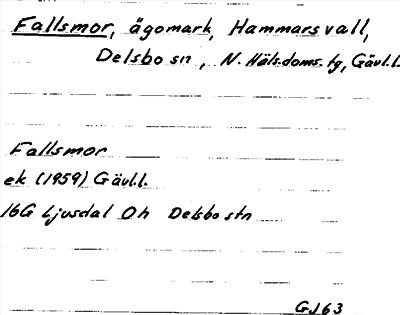 Fallsmor, ägomark, Hammarsvall,
Delsbo sn, N. Häls.doms. tg, Gävl.l.
Fallsmor
ek (1959) Gävl.l.
16G Ljusdal Oh Delsbo stn
GJ63